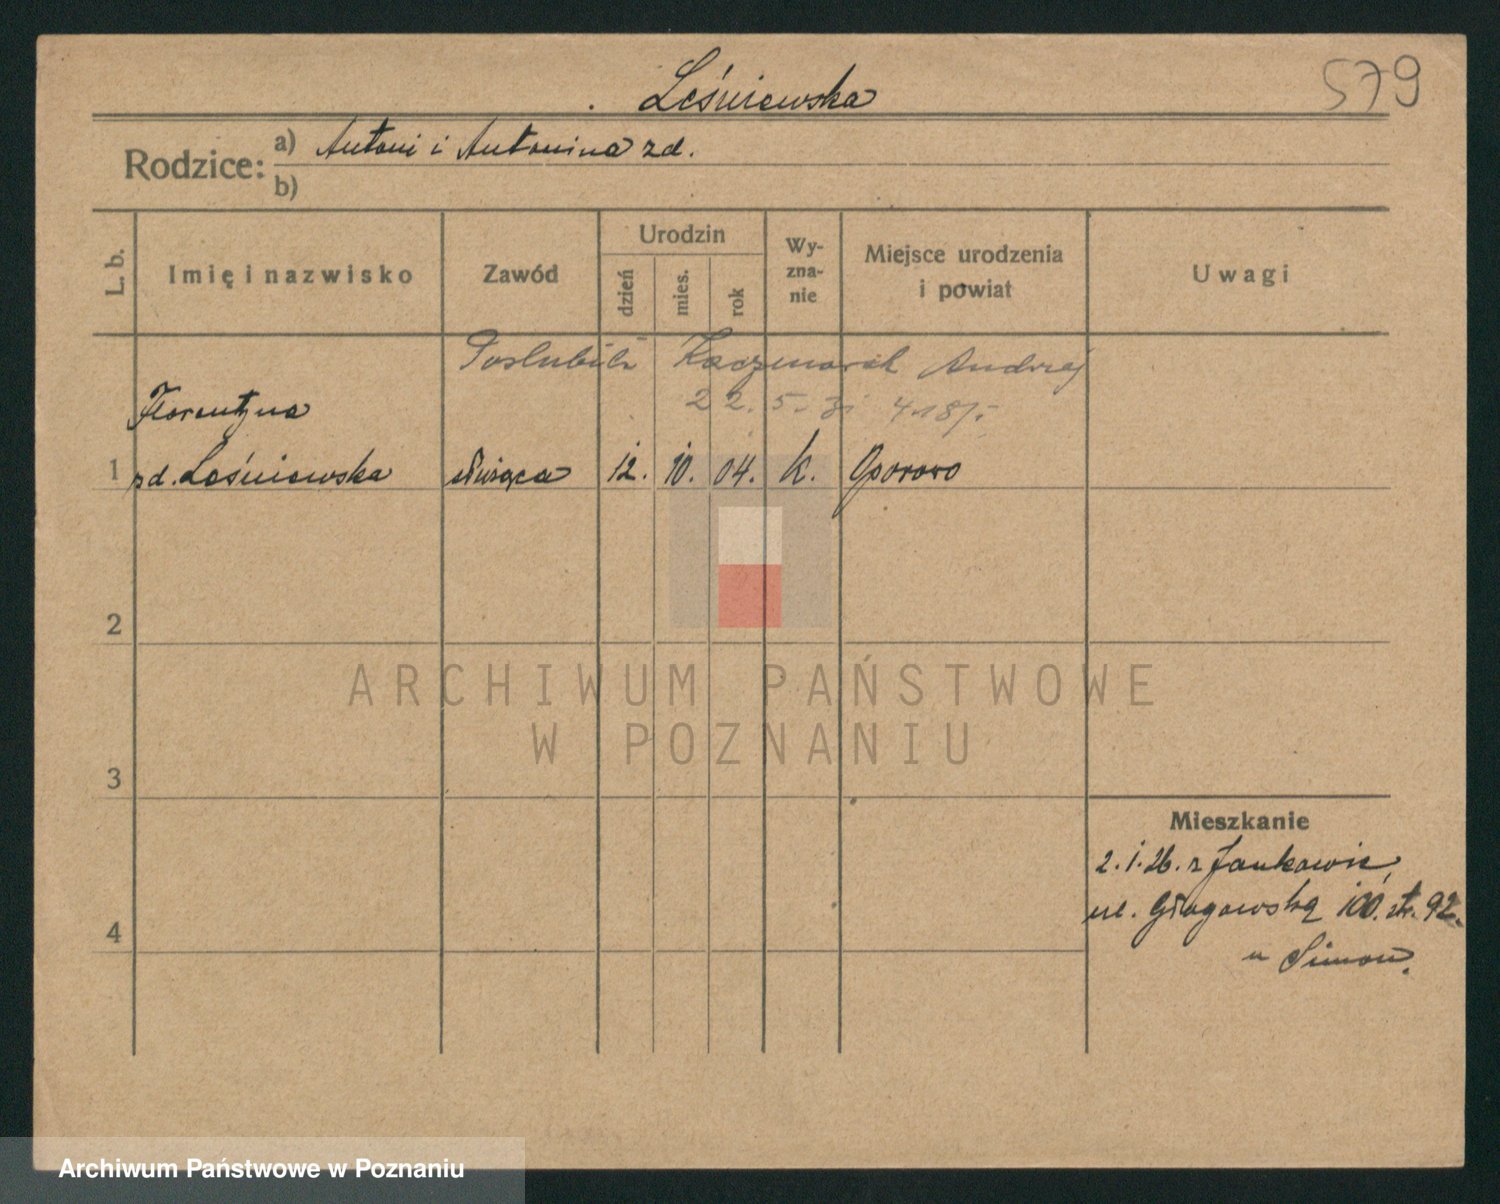 579
Leśniewska
Rodzice:
a) Antoni i Antonina zd.
b)
L. b.
Imię i nazwisko
Zawód
Urodzin
dzień
mies.
rok
Wy-
zna-
nie
Miejsce urodzenia
i powiat
Uwagi
Kaczmarek Andrzej
22. 5. 31 418/-
Florentyna
1 zd. Leśniewska służąca 12. 10. 04. k. Oporowo
2
3
4
Mieszkanie
2. 1. 26. z Jankowic,
ul. Głogowska 100. str. 92.
u Simon.
ARCHIWUM PAŃSTWOWE
W POZNANIU
Archiwum Państwowe w Poznaniu